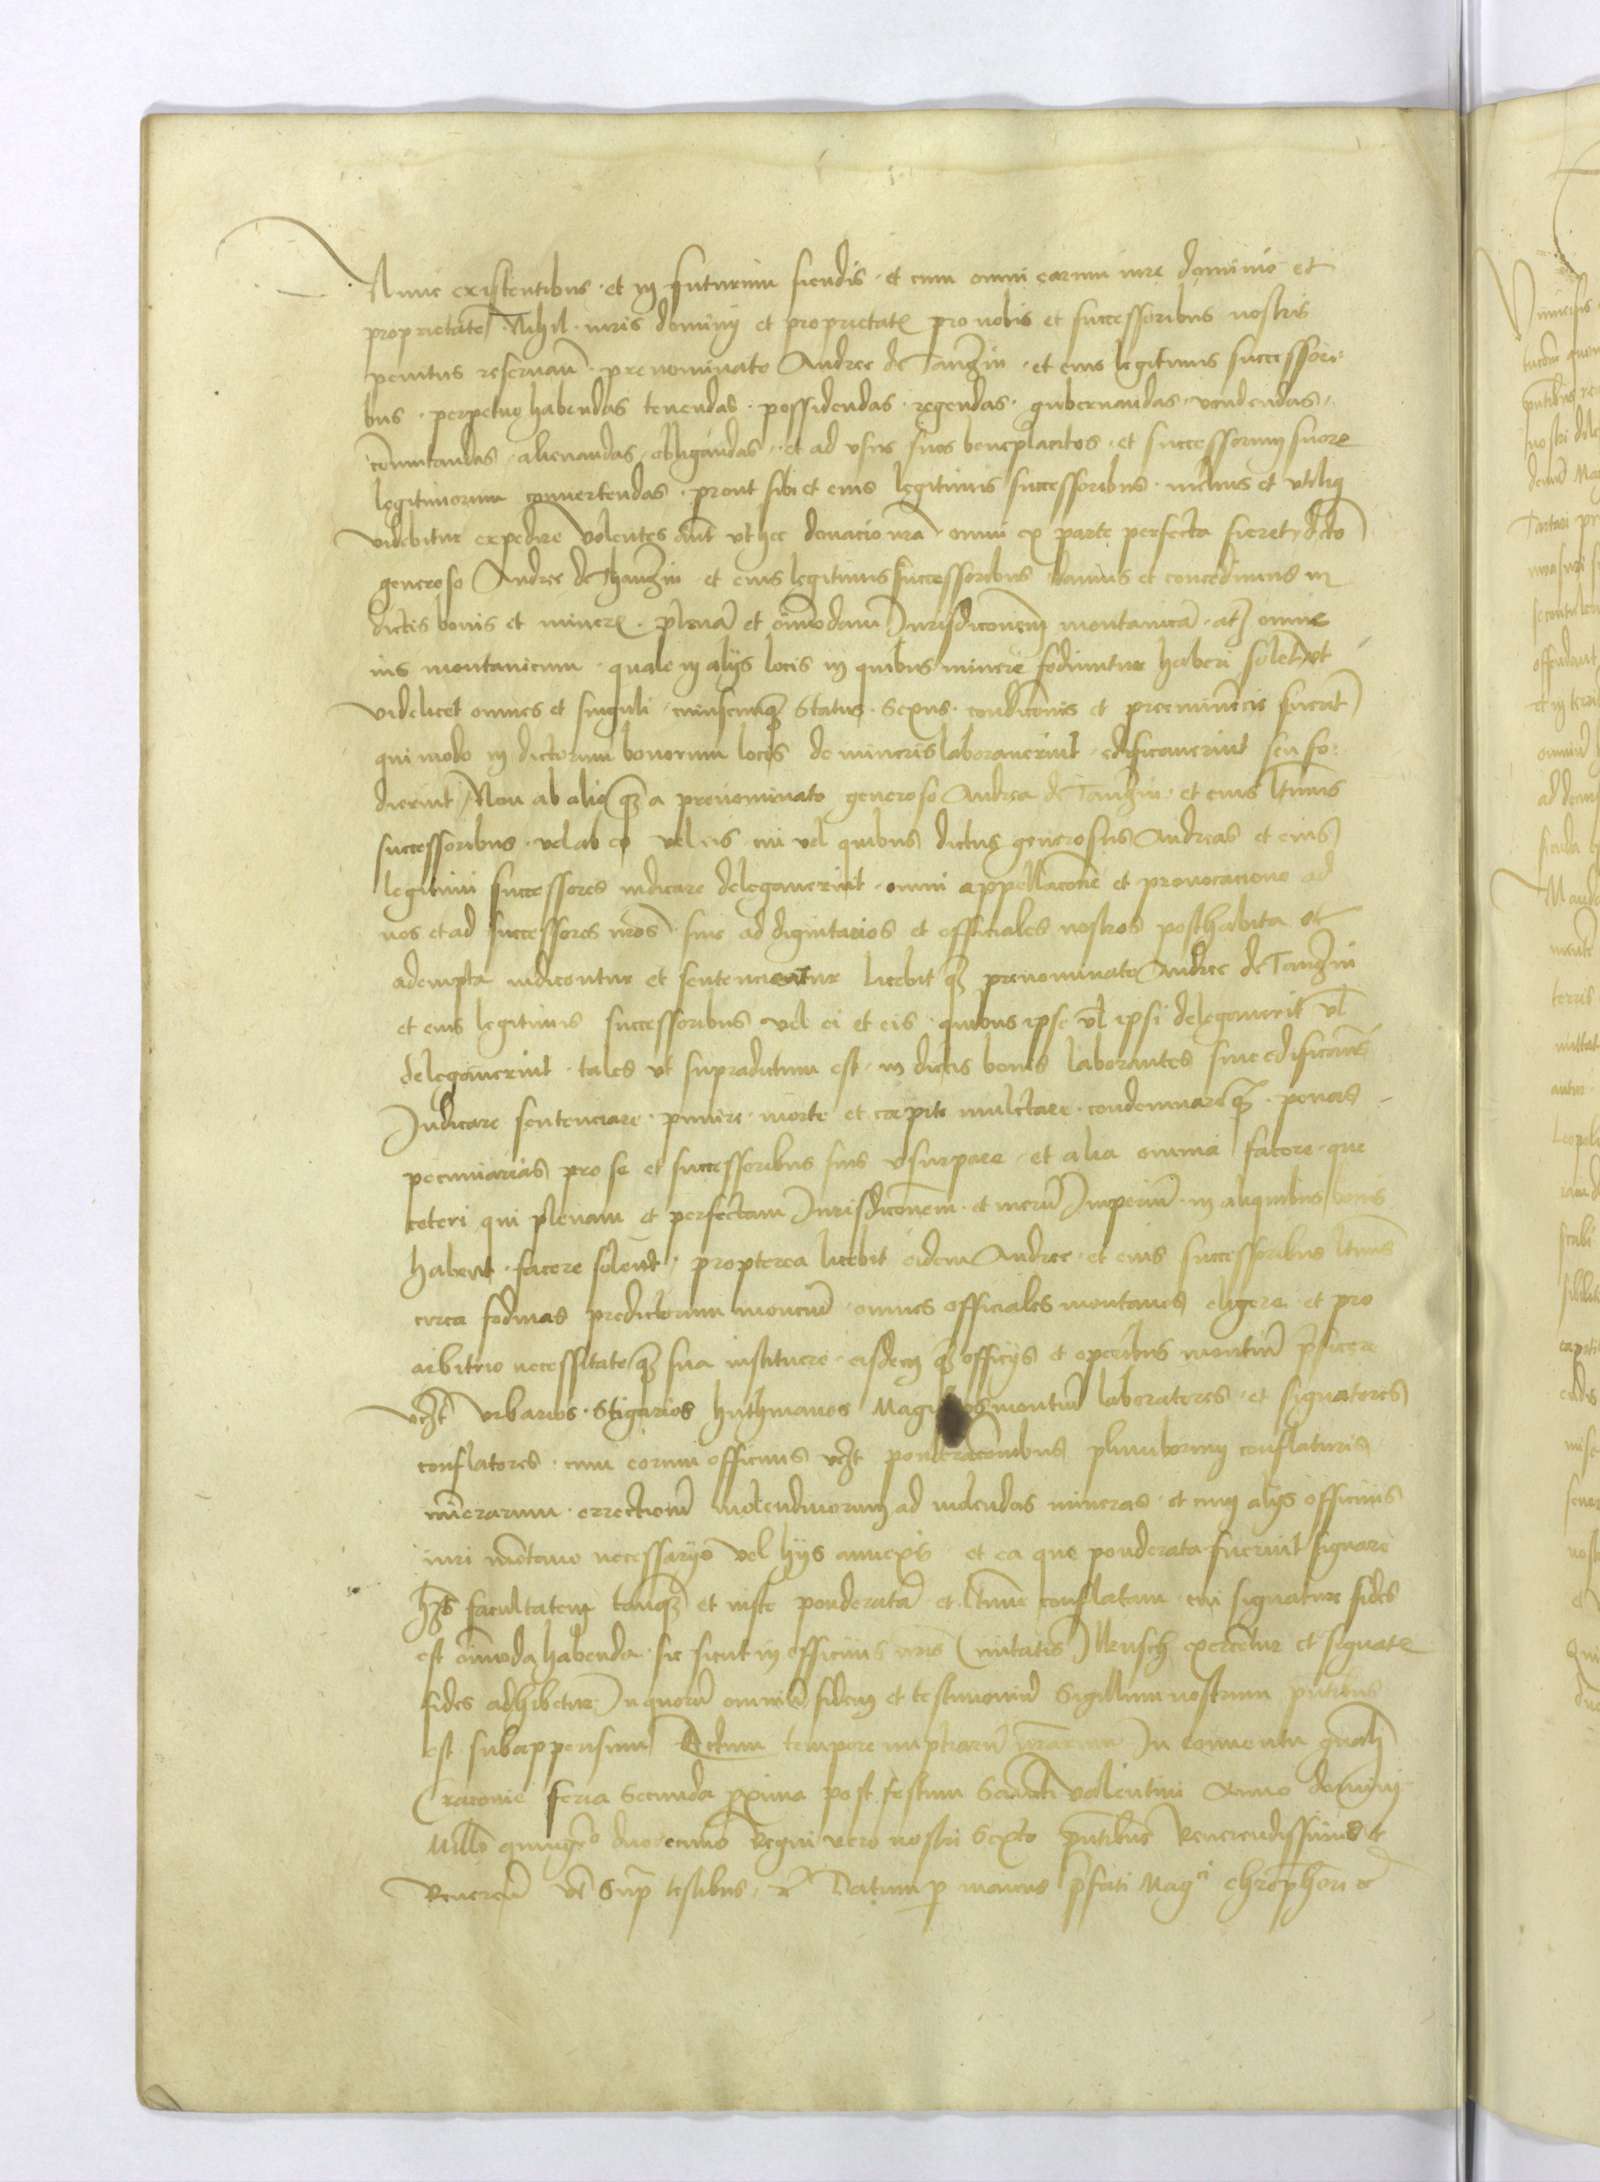 Nunc existentibus · et in futurum fiendis · et cum omni earum iure dominio et
proprietate Nihil · iuris dominij et proprietatis pro nobis et successoribus nostris
penitus reservan̄ · prenominato Andree de Tanczin · et eius legitimis successori-
bus · perpetuo habendas tenendas · possidendas · regendas · gubernandas · vendendas ·
cōmutandas · alienandas · obligandas · et ad usus suos beneplacitos · et successorum suore
legitimorum convertendas · prout sibi et eius legitimis successoribus · melius et utiliq
videbitur expedire Volentes aut̄ ut hec donacio nrā · omni ex parte perfecta fieret, dicto
generoso Andree de Thanczin · et eius legitimis successoribus damus et concedimus in
dictis bonis et mineris · plenā et oīmodam Jurisdicōnem montanicā · atqꝫ omne
ius montanicum · quale in alijs locis in quibus minere fodiuntur haberi solet ut
videlicet omnes et singuli · cuiuscunqꝫ Status · Sexus · condicōnis et preeminēcie fuerit
qui modo in dictorum bonorum locis de mineris laboraverint · edificaverint seu fo-
dierint Non ab alio qꝫ a prenominato generoso Andrea de Tanczin · et eius ltīmis
successoribus · vel ab eo vel eis · cui vel quibus dictus generosus Andreas et eius
legitimi successores iudicare delegaverint · omni appellacōne et provocacione ad
nos et ad successores nrōs · sive ad dignitarios et officiales nostros posthabita et
adempta iudicentur et sentencientur licebit qꝫ prenominato Andree de Tanczin
et eius legitimis successoribus vel ei et eis · quibus ipse vl̄ ipsi delegaverit vl̄
delegaverint · tales ut supradictum est · in dictis bonis laborantes sive edificantes
Judicare sentenciare · punire · morte et capite mulctare · condemnareqꝫ · penas
pecuniarias pro se et successoribus suis usurpare · et alia omnia facere · que
ceteri qui plenam et perfectam Jurisdicōnem · et merū Imperiū · in aliquibus bonis
habent · facere solent · propterea licebit eidem Andree · et eius successoribus ltīmis
circa fodinas predictorum monciū · omnes officiales montanos eligere et pro
arbitrio necessitateqꝫ sua instituere · eisdem qꝫ officijs et operibus montiū pficere
vcꝫt Urbarios · Stigarios huthmanos Magistros montiū laboratores · et signatores
conflatores · cum eorum officinis vcꝫt ponderacōnibus plumborum conflaturis
minerarum · errectionū molendinorum ad molendas mineras · et cum alijs officinis
iuri mōtano necessarijs vel hijs annexis · et ea que ponderata fuerint signare
hn̄s facultatem tanqꝫ et iuste ponderatā et ltīme conflatam · cui signature fides
est oīmoda habenda · sic sicut in officinis nrīs civitatis Ilkusch exercetur et signate
fides adhibetur In quorū omniū fidem et testimoniū Sigillum nostrum pn̄tibus
est subappensum Actum tempore nuptiarū nrārum In conventu gn̄ali
Cracovie feria Secunda pxima post festum Sancti Valentini Anno domini
Millo quingēo duodecimo Regni vero nostri Sexto Pn̄tibus Reverendissimis et
Reveren̄ ut Sup̄ testibus, etc̄ Datum p manus pfati Magci Christophori etc